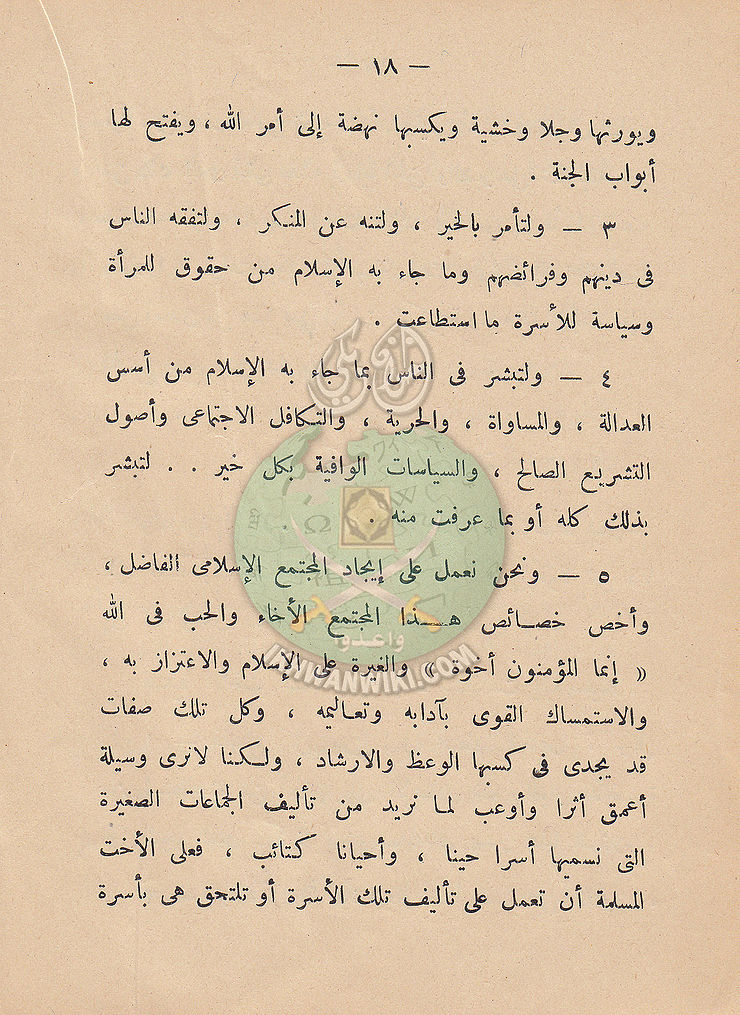 — ١٨ —
ويورثها وجلا وخشية ويكسبها نهضة إلى أمر الله ، ويفتح لها
أبواب الجنة .
٣ — ولتأمر بالخير ، ولتنه عن المنكر ، ولتفقه الناس
فى دينهم وفرائضهم وما جاء به الإسلام من حقوق للمرأة
وسياسة للأسرة ما استطاعت .
٤ — ولتبشر فى الناس بما جاء به الإسلام من أسس
العدالة ، والمساواة ، والحرية ، والتكافل الاجتماعى وأصول
التشريع الصالح ، والسياسات الوافية بكل خير . . لتبشر
بذلك كله أو بما عرفت منه .
٥ — ونحن نعمل على إيجاد المجتمع الإسلامى الفاضل ،
وأخص خصائص هذا المجتمع الأخاء والحب فى الله
« إنما المؤمنون أخوة » والغيرة على الإسلام والاعتزاز به ،
والاستمساك القوى بآدابه وتعاليمه ، وكل تلك صفات
قد يجدى فى كسبها الوعظ والارشاد ، ولكنا لا نرى وسيلة
أعمق أثرا وأوعب لما نريد من تأليف الجماعات الصغيرة
التى نسميها أسرا حينا ، وأحيانا كتائب ، فعلى الأخت
المسلمة أن تعمل على تأليف تلك الأسرة أو تلتحق هى بأسرة
وأعدوا
IKHWANWIKI.COM